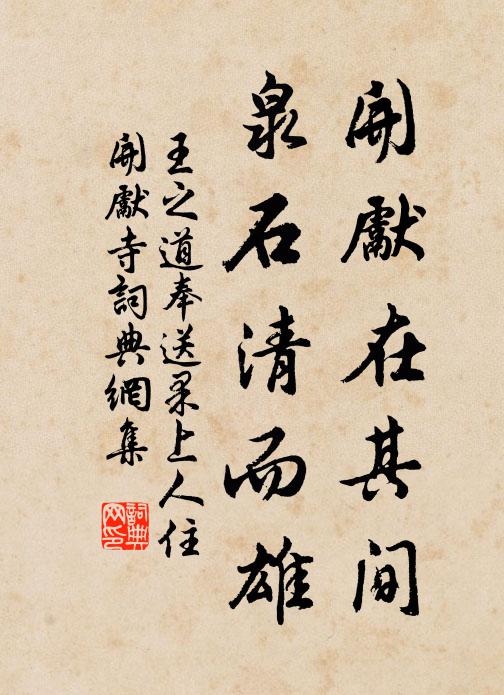 開獻在其間
泉石清而雄
王之道奉送果上人住
開獻寺詞典網集
詞典网印